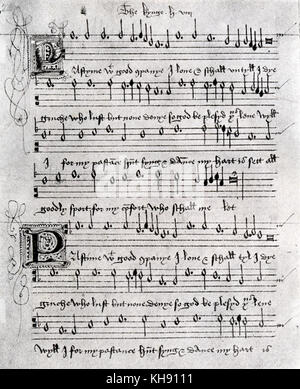 The Kynge . H . viii
Pastyme wt good companye I love & schall untyll I dye
gruche who lust but none denye so god be plesyd ys leve wyll
I for my pastance hunt syng & dance my hart is sett all
goodly sport for my comfort who schall me let
Pastyme wt good companye I love & schall tyl I dye
gruche who lust but none denye so god be plesyd ys leve
wyll I for my pastance hunt syng & dance my hart is
alamy
KH9111